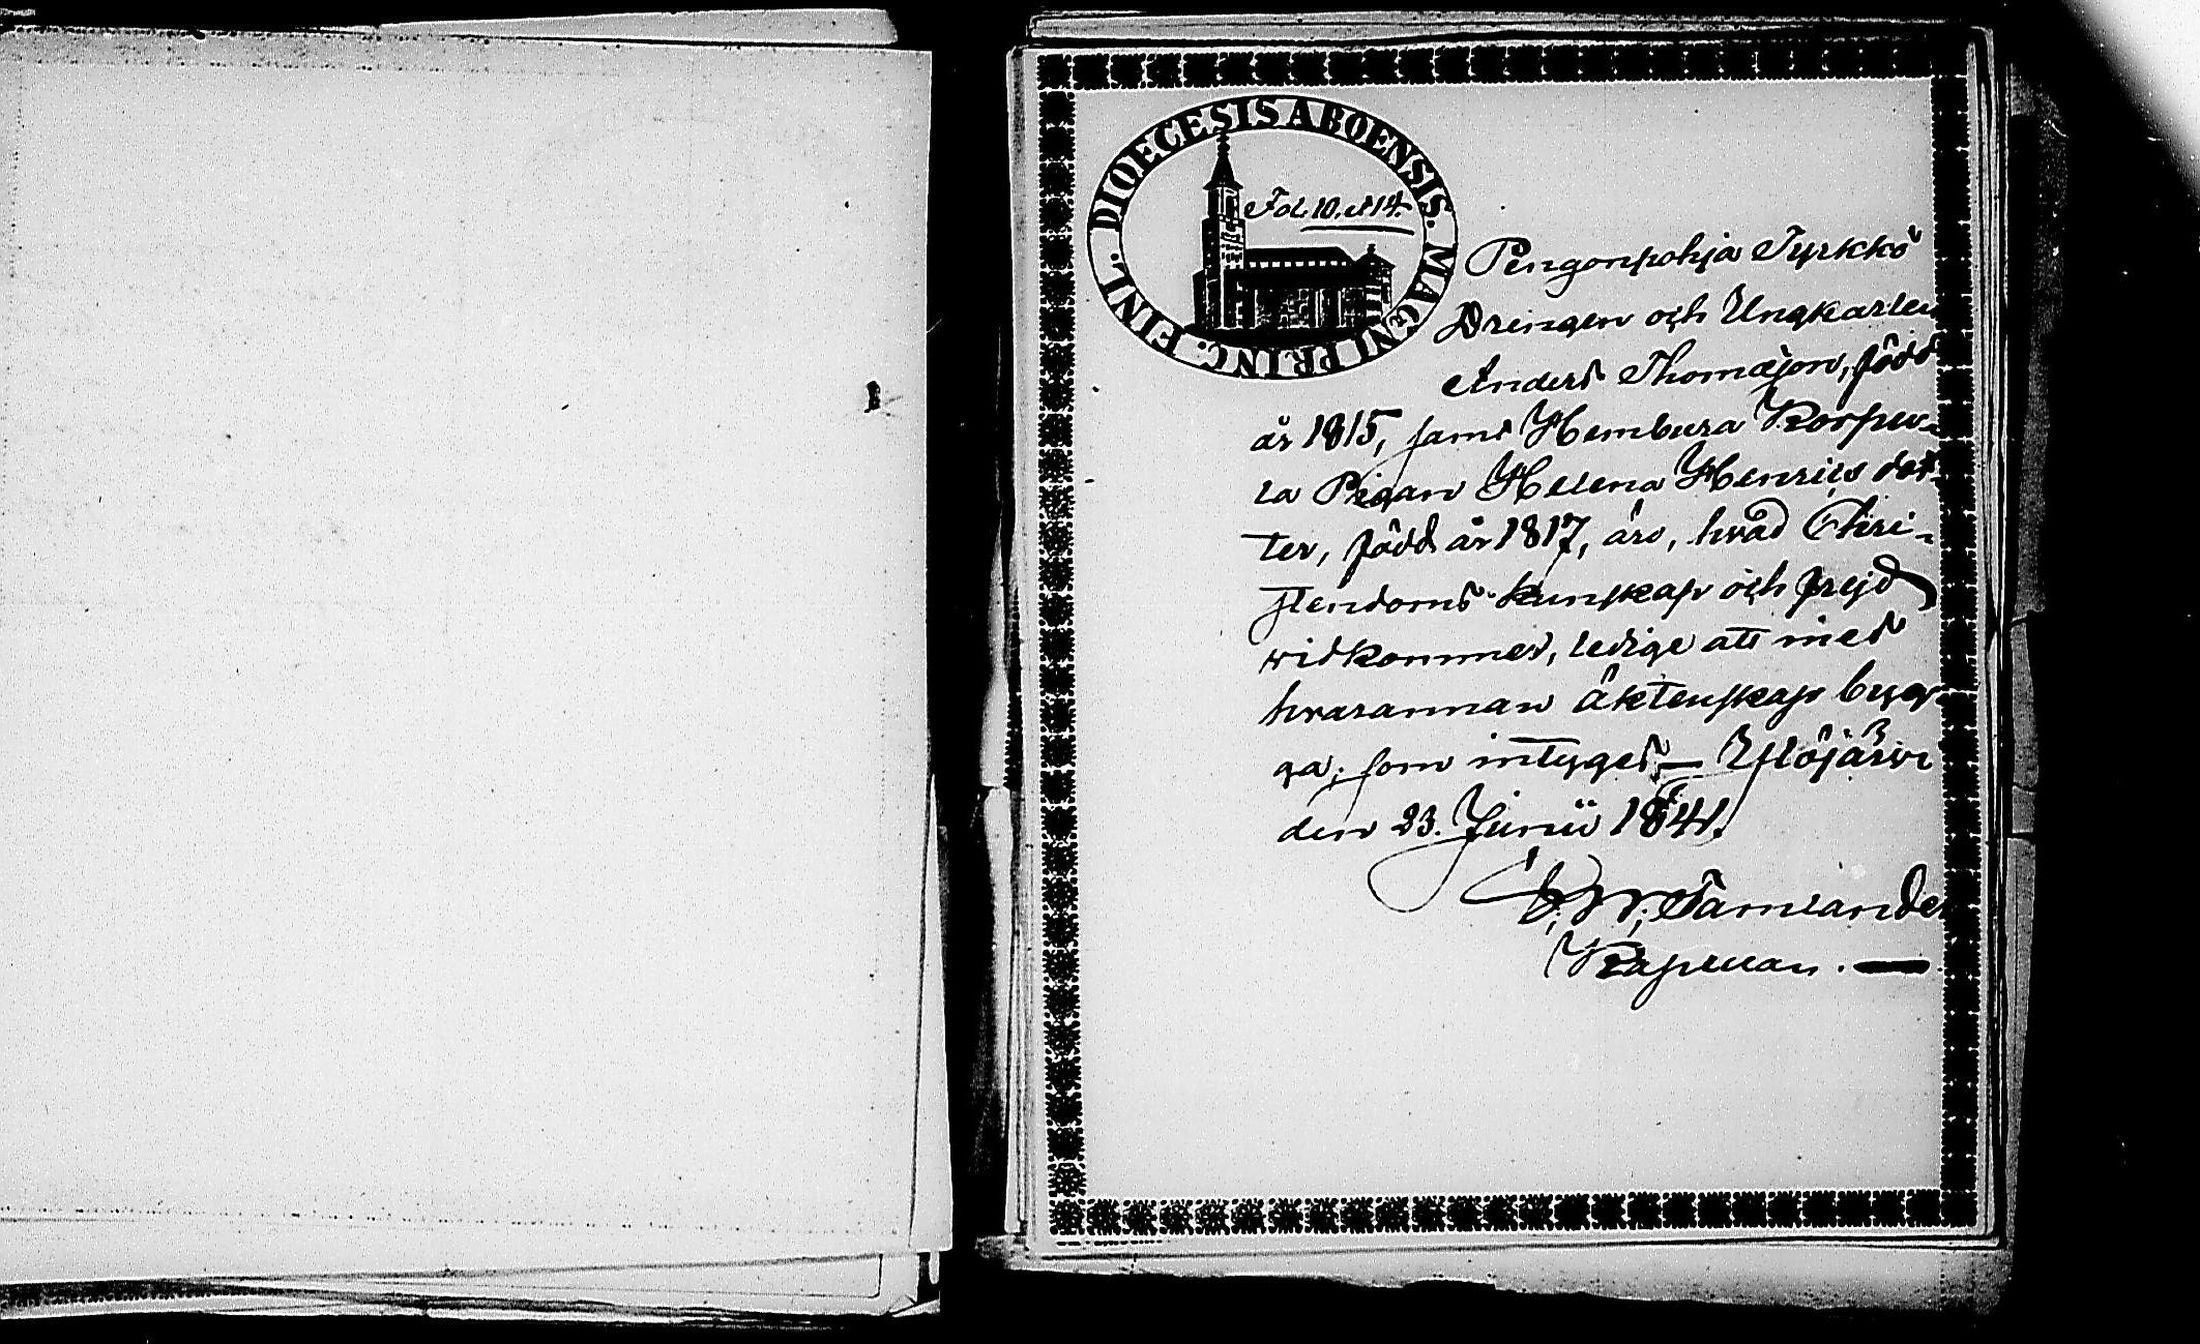 DIOECESIS ABOENSIS. MAGNI PRINC. FINL.
Fol. 10. et 14.
Pengonpohja Tyrkkö
Drengen och Ungkarlen
Anders Thomasson, född
år 1815, samt Hembura Korpu-
la Pigan Helena Henricsdot-
ter, född år 1817, äro, hvad Chri-
stendoms kunskap och frejd
vidkommer, ledige att med
hvarannan äktenskap byg-
ga; som intygas — Ylöjärvi
den 23. Junii 1841.
Tamlander
Kapellan. —